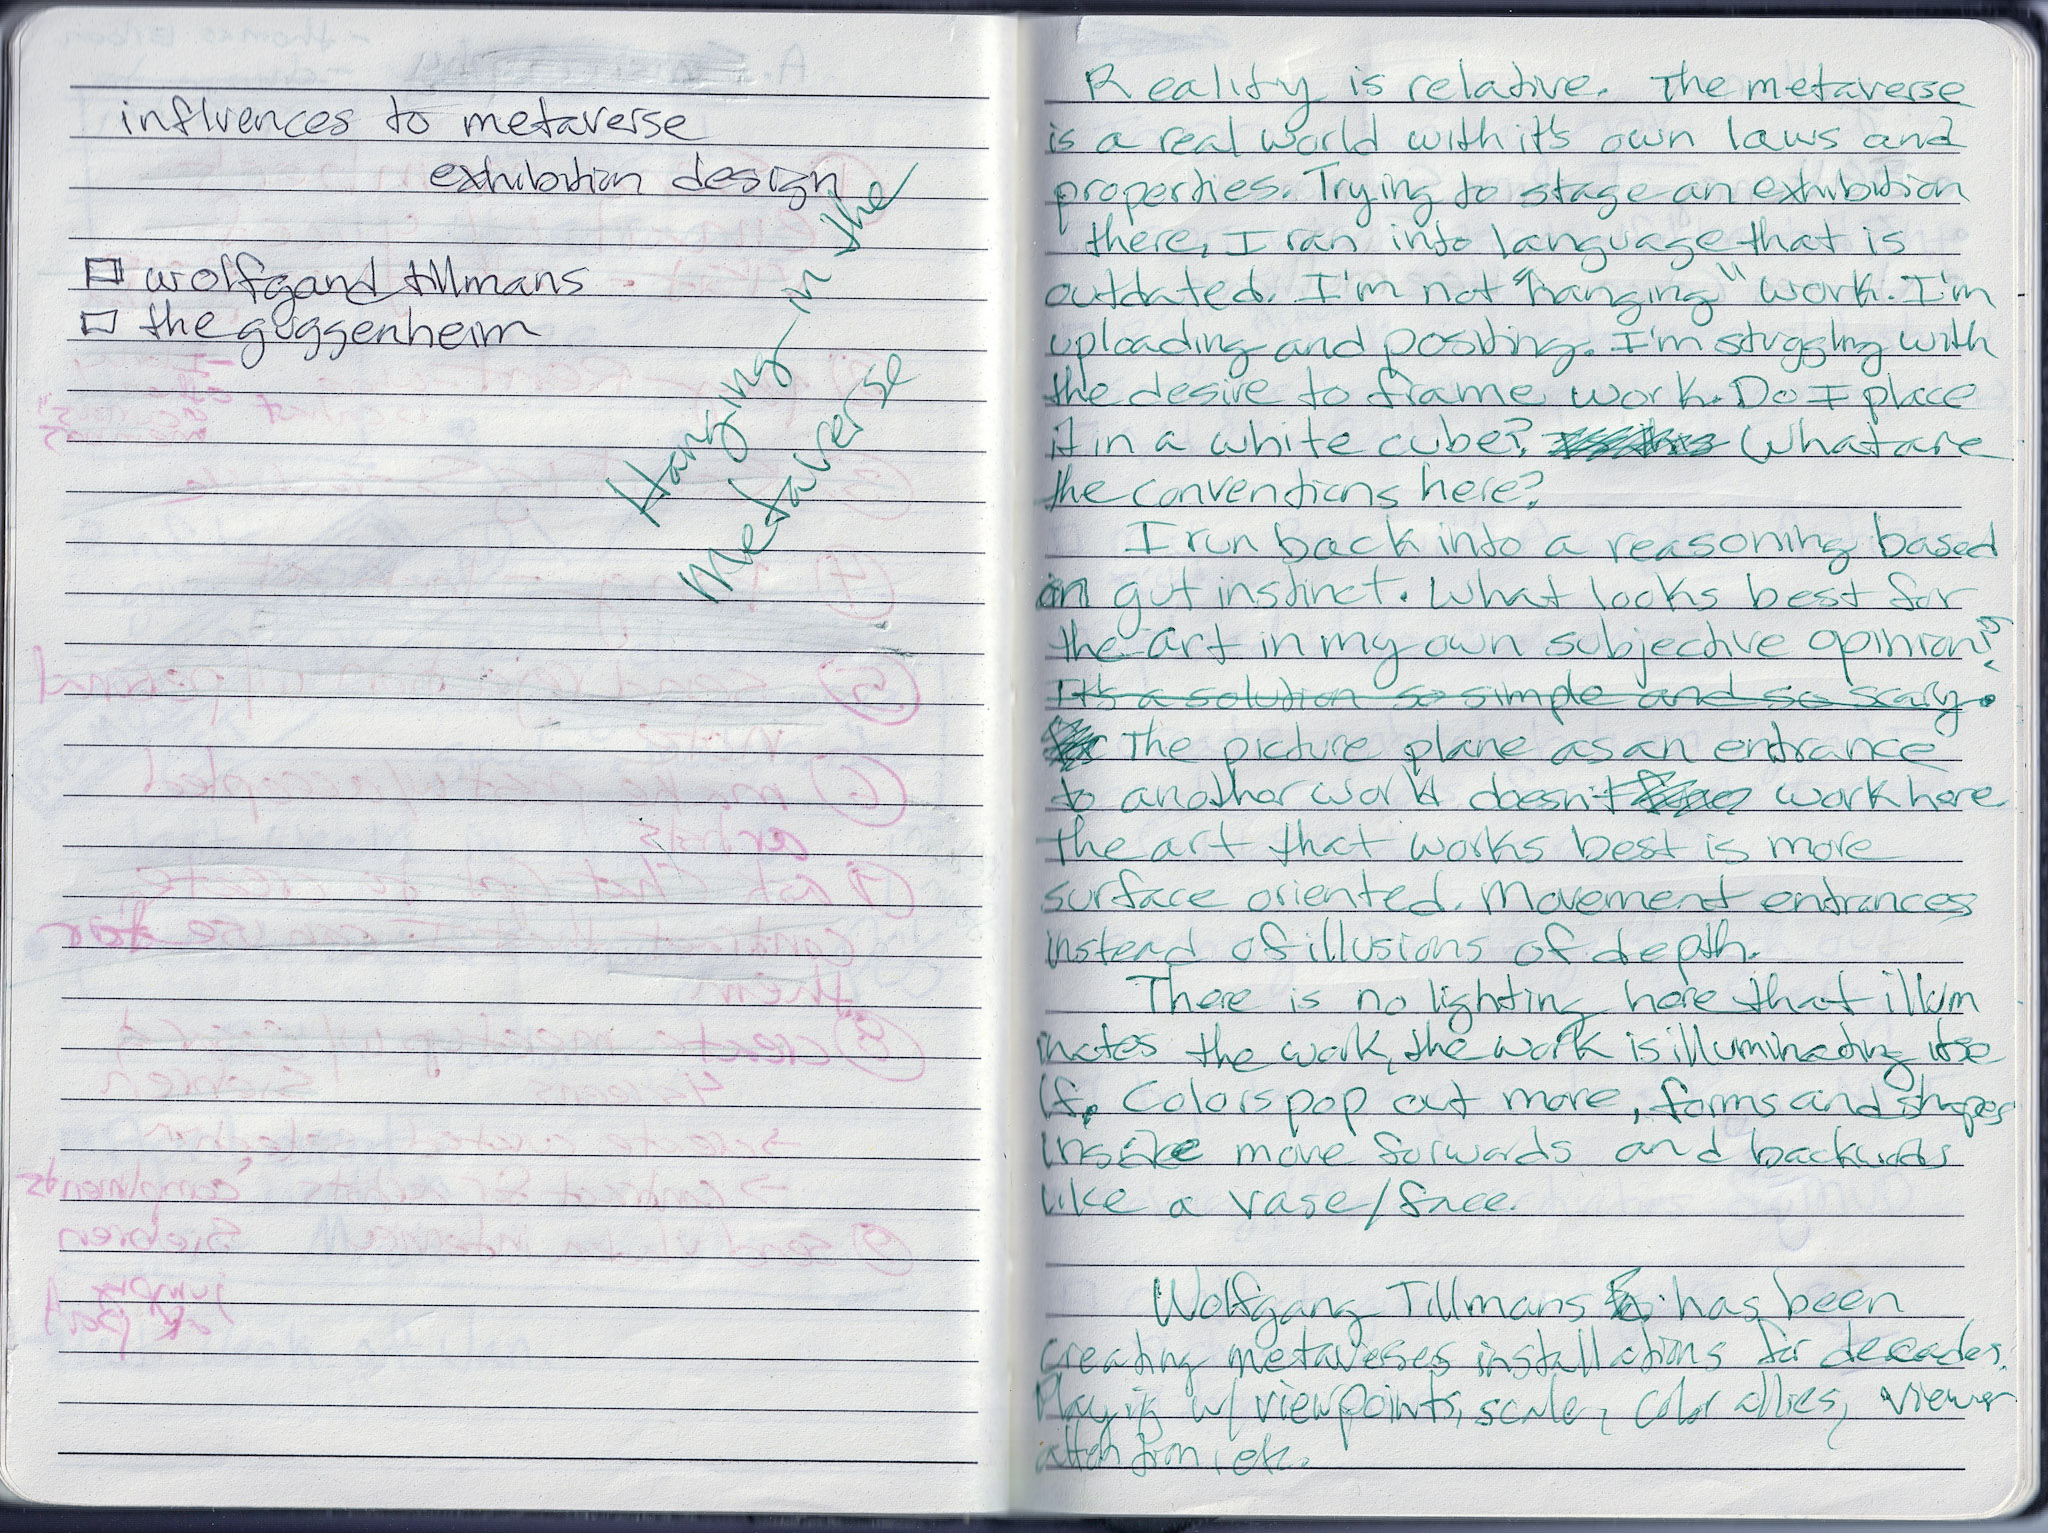 influences to metaverse
exhibition design
wolfgand tillmans
the guggenheim
Hanging in the
Metaverse
Reality is relative. The metaverse
is a real world with it's own laws and
properties. Trying to stage an exhibition
there, I ran into language that is
outdated. I'm not "hanging" work. I'm
uploading and positing. I'm struggling with
the desire to frame work. Do I place
it in a white cube? What are
the conventions here?
I run back into a reasoning based
on gut instinct. What looks best for
the art in my own subjective opinion?
It's a solution so simple and so scary.
The picture plane as an entrance
to another world doesn't work here
the art that works best is more
surface oriented. Movement entrances
instead of illusions of depth.
There is no lighting here that illum
inates the work, the work is illuminating itse
lf. Colors pop out more, forms and shapes
inside move forwards and backwards
like a vase/face.
Wolfgang Tillmans has been
creating metaverses installations for decades.
Playing w/ viewpoints, scale, color allies, viewer
attention, etc.